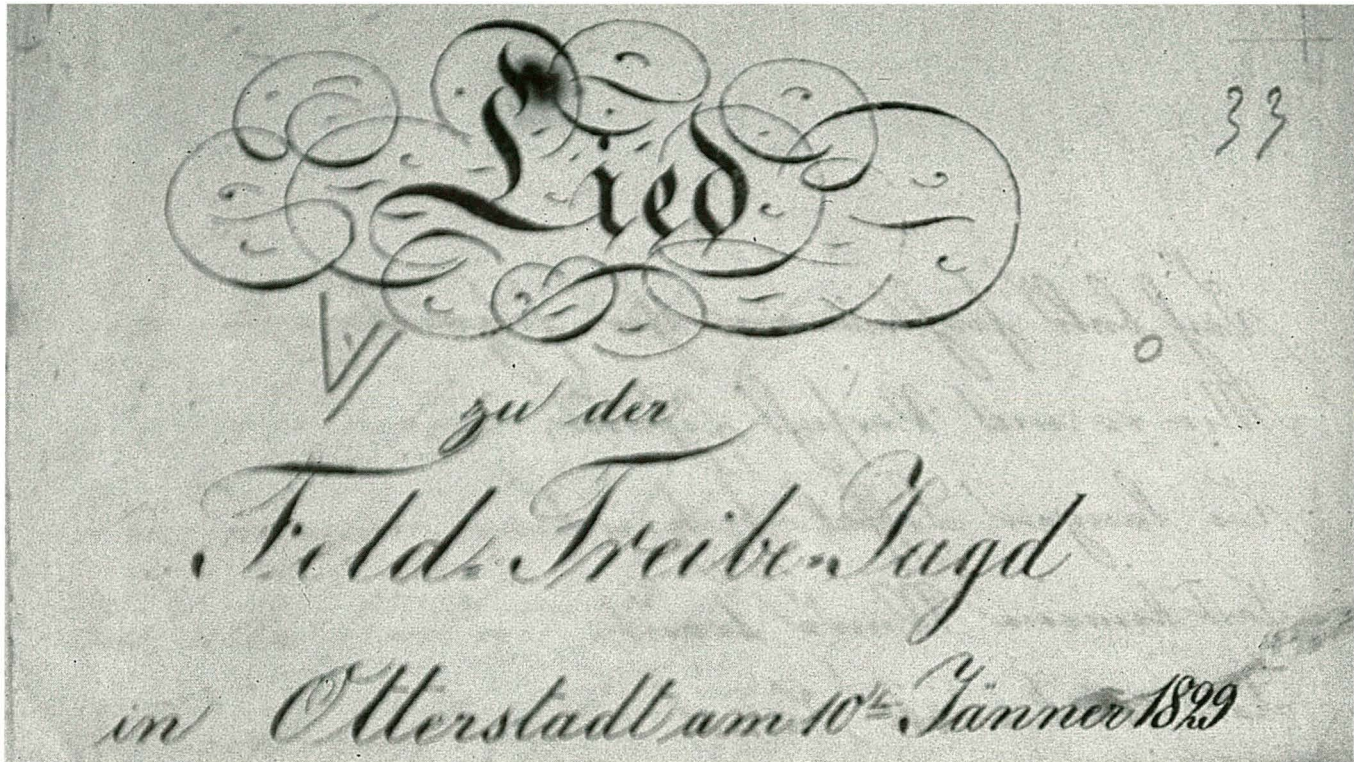 33
Lied
zu der
Feld-Treibe-Jagd
in Otterstadt am 10te Jänner 1829